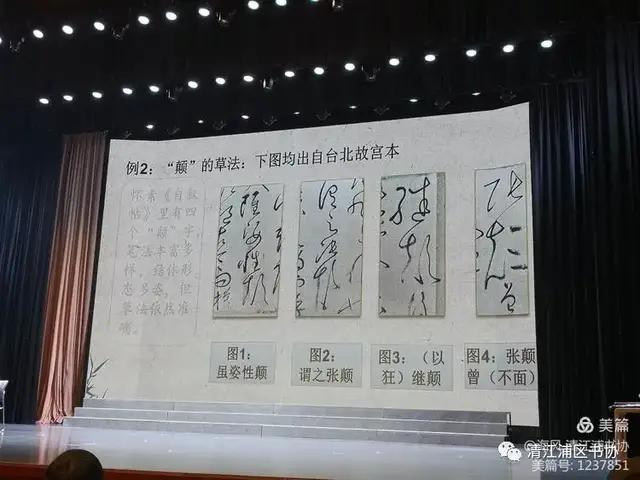 例2：“颠”的草法：下图均出自台北故宫本
怀素《自叙
帖》里有四
个“颠”字，
笔法丰富多
样，结体形
态多姿，但
草法依然准
确。
图1：
虽姿性颠
图2：
谓之张颠
图3：（以
狂）继颠
图4：张颠
曾（不面）
美篇
@海风 清江浦书协
清江浦区书协
美篇号：1237851